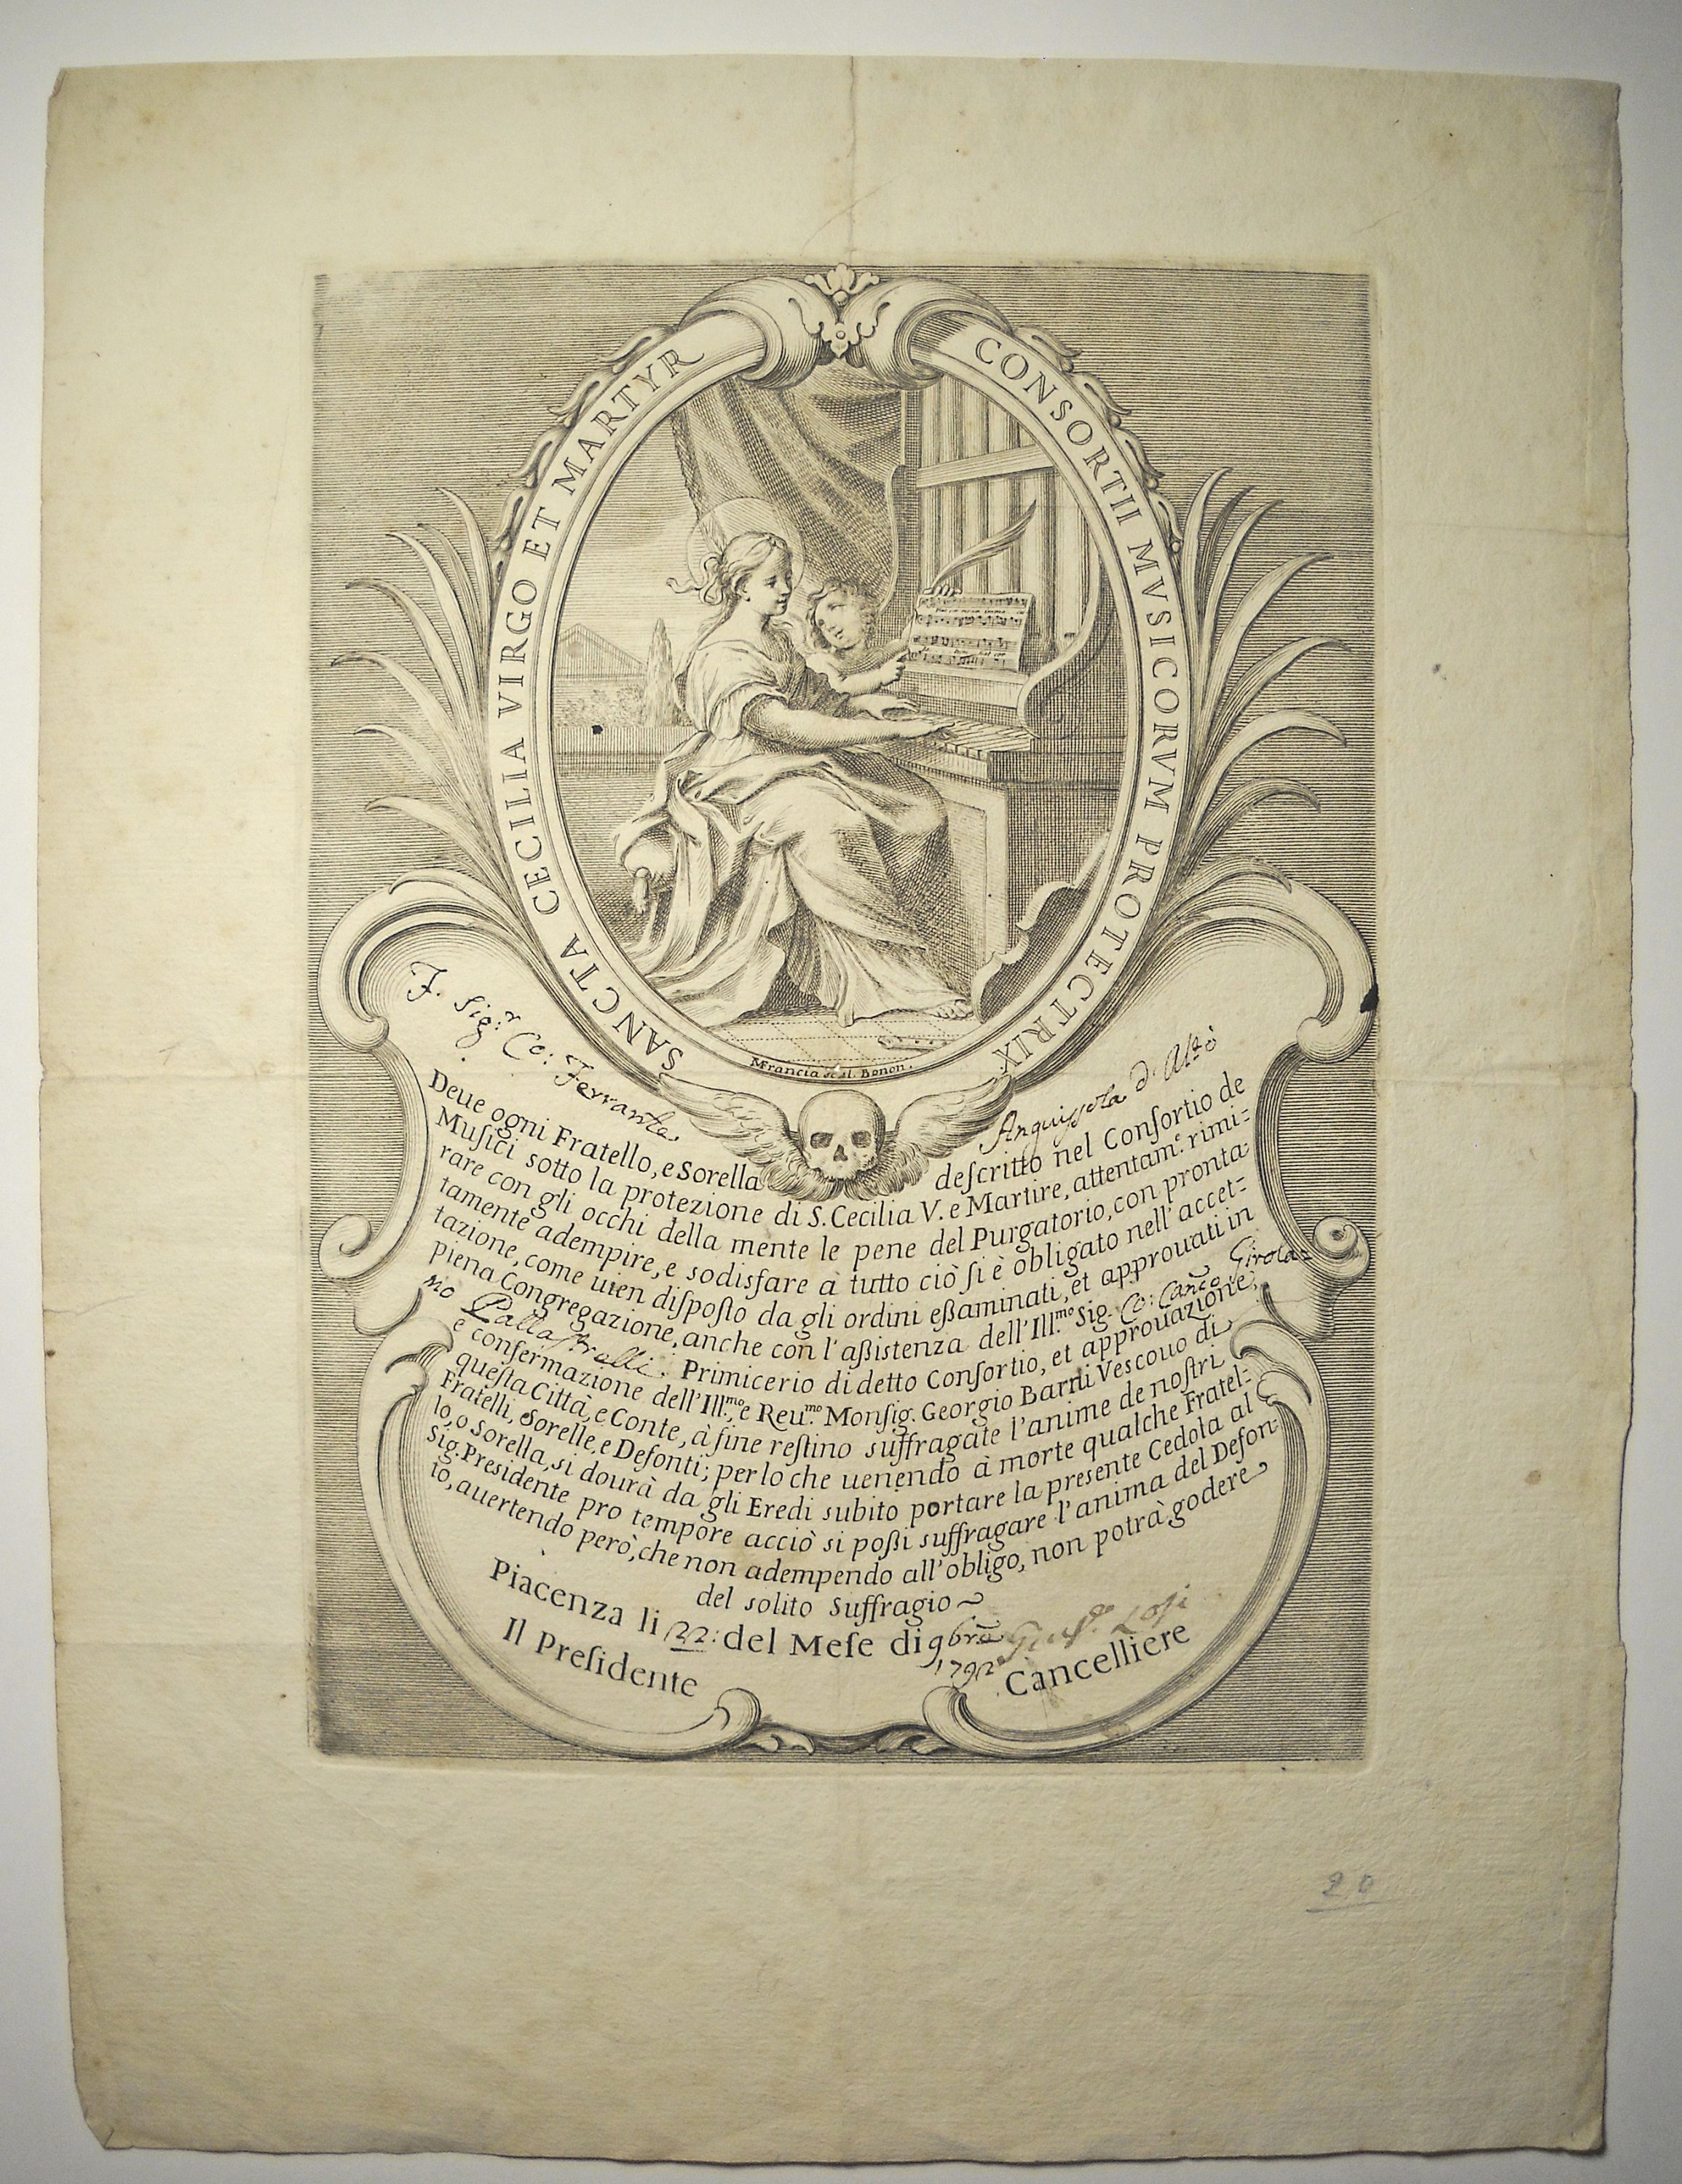 SANCTA CECILIA VIRGO ET MARTYR
CONSORTII MVSICORVM PROTECTRIX
M. Francia Bonon.
Sig.r Co: Ferrante
Anguissola d'
Deue ogni Fratello, e Sorella deſcritto nel Conſortio de
Muſici sotto la protezione di S. Cecilia V. e Martire, attentam.e rimi=
rare con gli occhi della mente le pene del Purgatorio, con pronta
tamente adempire, e sodisfare à tutto ciò ſi è obligato nell'accet=
tazione, come uien diſpoſto da gli ordini eßaminati, et approuati in
piena Congregazione, anche con l'aßistenza dell'Ill.mo Sig. Co: Can.co Girola=
mo Pallastrelli. Primicerio di detto Conſortio, et approuazione,
e confermazione dell'Ill.mo, e Reu.mo Monſig. Georgio Barni Vescouo di
queſta Città, e Conte, à fine reſtino suffragate l'anime de noſtri
Fratelli, Sorelle, e Defonti; per lo che uenendo à morte qualche Fratel=
lo, o Sorella, si dourà da gli Eredi subito portare la presente Cedola al
Sig. Presidente pro tempore acciò si poßi suffragare l'anima del Defon=
to, auertendo però, che non adempendo all'obligo, non potrà godere
del solito Suffragio ~
Piacenza li 22: del Meſe di 9bre
1792
Giuſ.e Loſi
Il Preſidente
Cancelliere
20